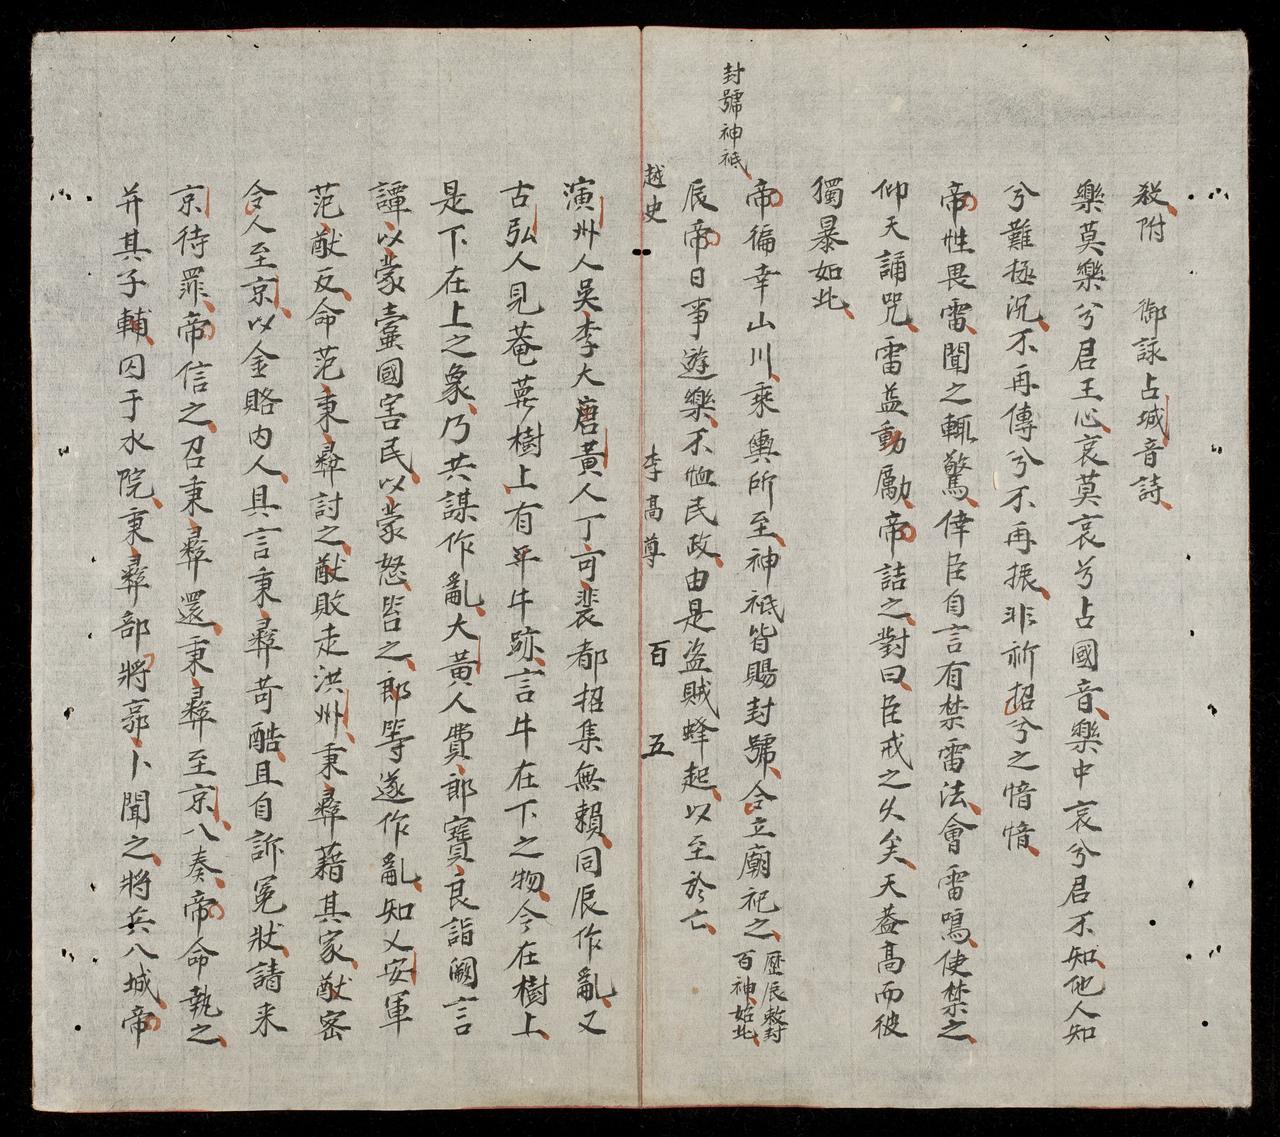 殺附　御詠占城音詩
樂莫樂兮君王心哀莫哀兮占國音樂中哀兮君不知他人知
兮難極沉不再傳兮不再振非祈招兮之愔愔
帝性畏雷聞之輒驚倖臣自言有禁雷法會雷鳴使禁之
仰天誦咒雷益動勵帝詰之對曰臣戒之久矣天蓋高而彼
獨暴如此
封號神祇
帝徧幸山川乘輿所至神祇皆賜封號令立廟祀之歷辰敕封百神始此
辰帝日事遊樂不恤民政由是盗賊蜂起以至於亡
越史　李高尊　百五
演州人吳李大唐黄人丁可裴都招集無賴同辰作亂又
古弘人見菴𦲷樹上有牛跡言牛在下之物今在樹上
是下在上之象乃共謀作亂大黄人費郎寳良詣闕言
譚以蒙蠧國害民以蒙怒笞之郎等遂作亂知乂安軍
范猷反命范秉彝討之猷敗走洪州秉彝藉其家猷密
令人至京以金賂内人具言秉彝苛酷且自訴冤狀請来
京待罪帝信之召秉彝還秉彝至京入奏帝命執之
并其子輔囚于水院秉彝部將郭卜聞之將兵入城帝